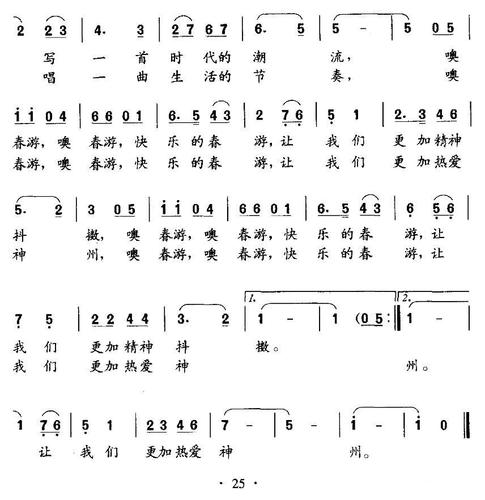 2 2 3 | 4. 3 | 2 2 7 6 7 | 6. 5 | 5 - | 5 0 5 |
写 一 首 时 代 的 潮 流， 噢
唱 一 曲 生 活 的 节 奏， 噢
1 1 0 4 | 6 6 0 1 | 6. 5 4 3 | 2 7 6 | 5 1 | 2. 3 4 6 |
春游，噢 春游，快 乐 的 春 游，让 我 们 更加精神
春游，噢 春游，快 乐 的 春 游，让 我 们 更加热爱
5. 2 | 3 0 5 | 1 1 0 4 | 6 6 0 1 | 6. 5 4 3 | 6 5 6 |
抖 擞，噢 春游，噢 春游，快 乐的春 游，让
神 州，噢 春游，噢 春游，快 乐的春 游，让
1. 2.
7 5 | 2 2 4 4 | 3. 2 | 1 - | 1 (0 5 :‖ 1 - |
我 们 更加精神 抖 擞。
我 们 更加热爱 神 州。
1 7 6 | 5 1 | 2 3 4 6 | 7 - | 5 - | 1 - | 1 0 ‖
让 我 们 更加热爱 神 州。
· 25 ·